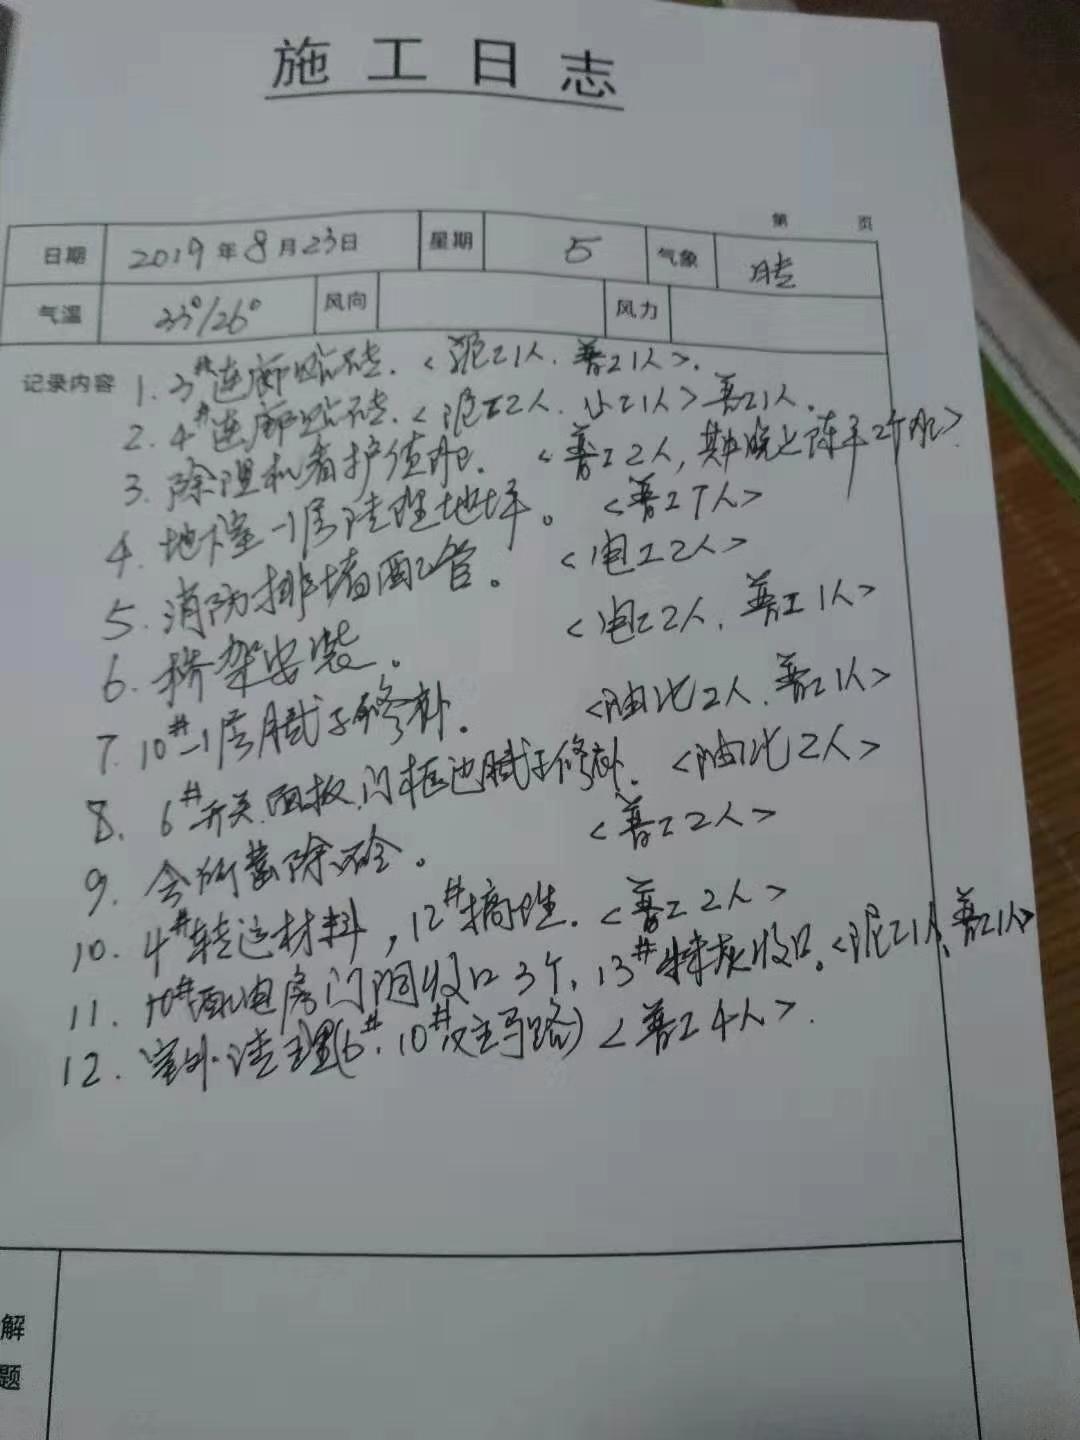 施工日志
第 页
日期 2019年8月23日 星期 5 气象 晴
气温 33°/26° 风向 风力
记录内容 1. 3#连廊贴砖. <泥工1人. 普工1人>.
2. 4#连廊贴砖. <泥工2人. 小工1人> 普工1人.
3. 除湿机看护值班. <普工2人, 其中晚上 2个>.
4. 地下室-1层 地坪. <普工7人>
5. 消防排 配管. <电工2人>
6. 桥架安装. <电工2人. 普工1人>
7. 10#-1层腻子修补. <油化2人. 普工1人>
8. 6#开关.面板.门框边腻子修补. <油化2人>
9. 会所凿除砼. <普工2人>
10. 4#转运材料, 12# . <普工2人>
11. 10#配电房门洞收口3个, 13# 收口. <泥工1人. 普工1人>
12. 室外清理(6#. 10#及主马路) <普工4人>.
解
题